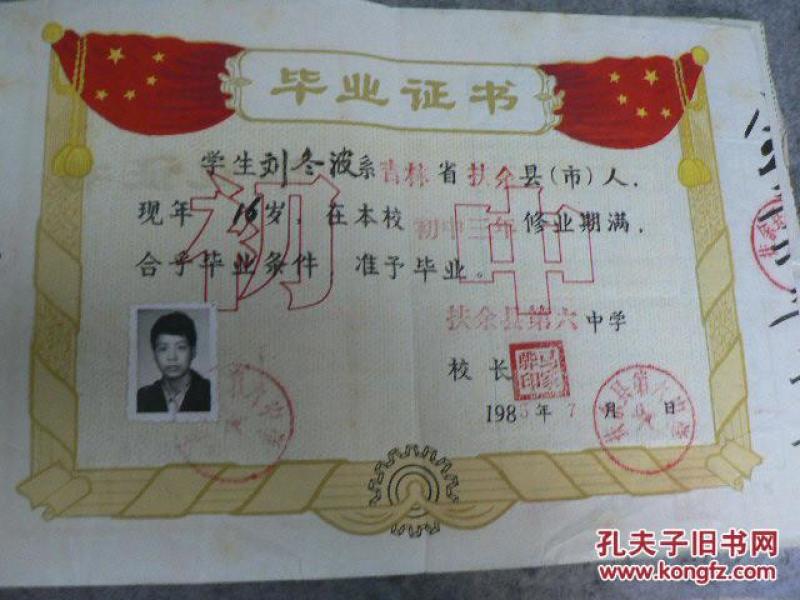 毕业证书
学生刘冬波系吉林省扶余县(市)人，
现年16岁，在本校初中三年修业期满，
合乎毕业条件 准予毕业。
初中
扶余县第六中学
校长
1985年7月 日
孔夫子旧书网
www.kongfz.com